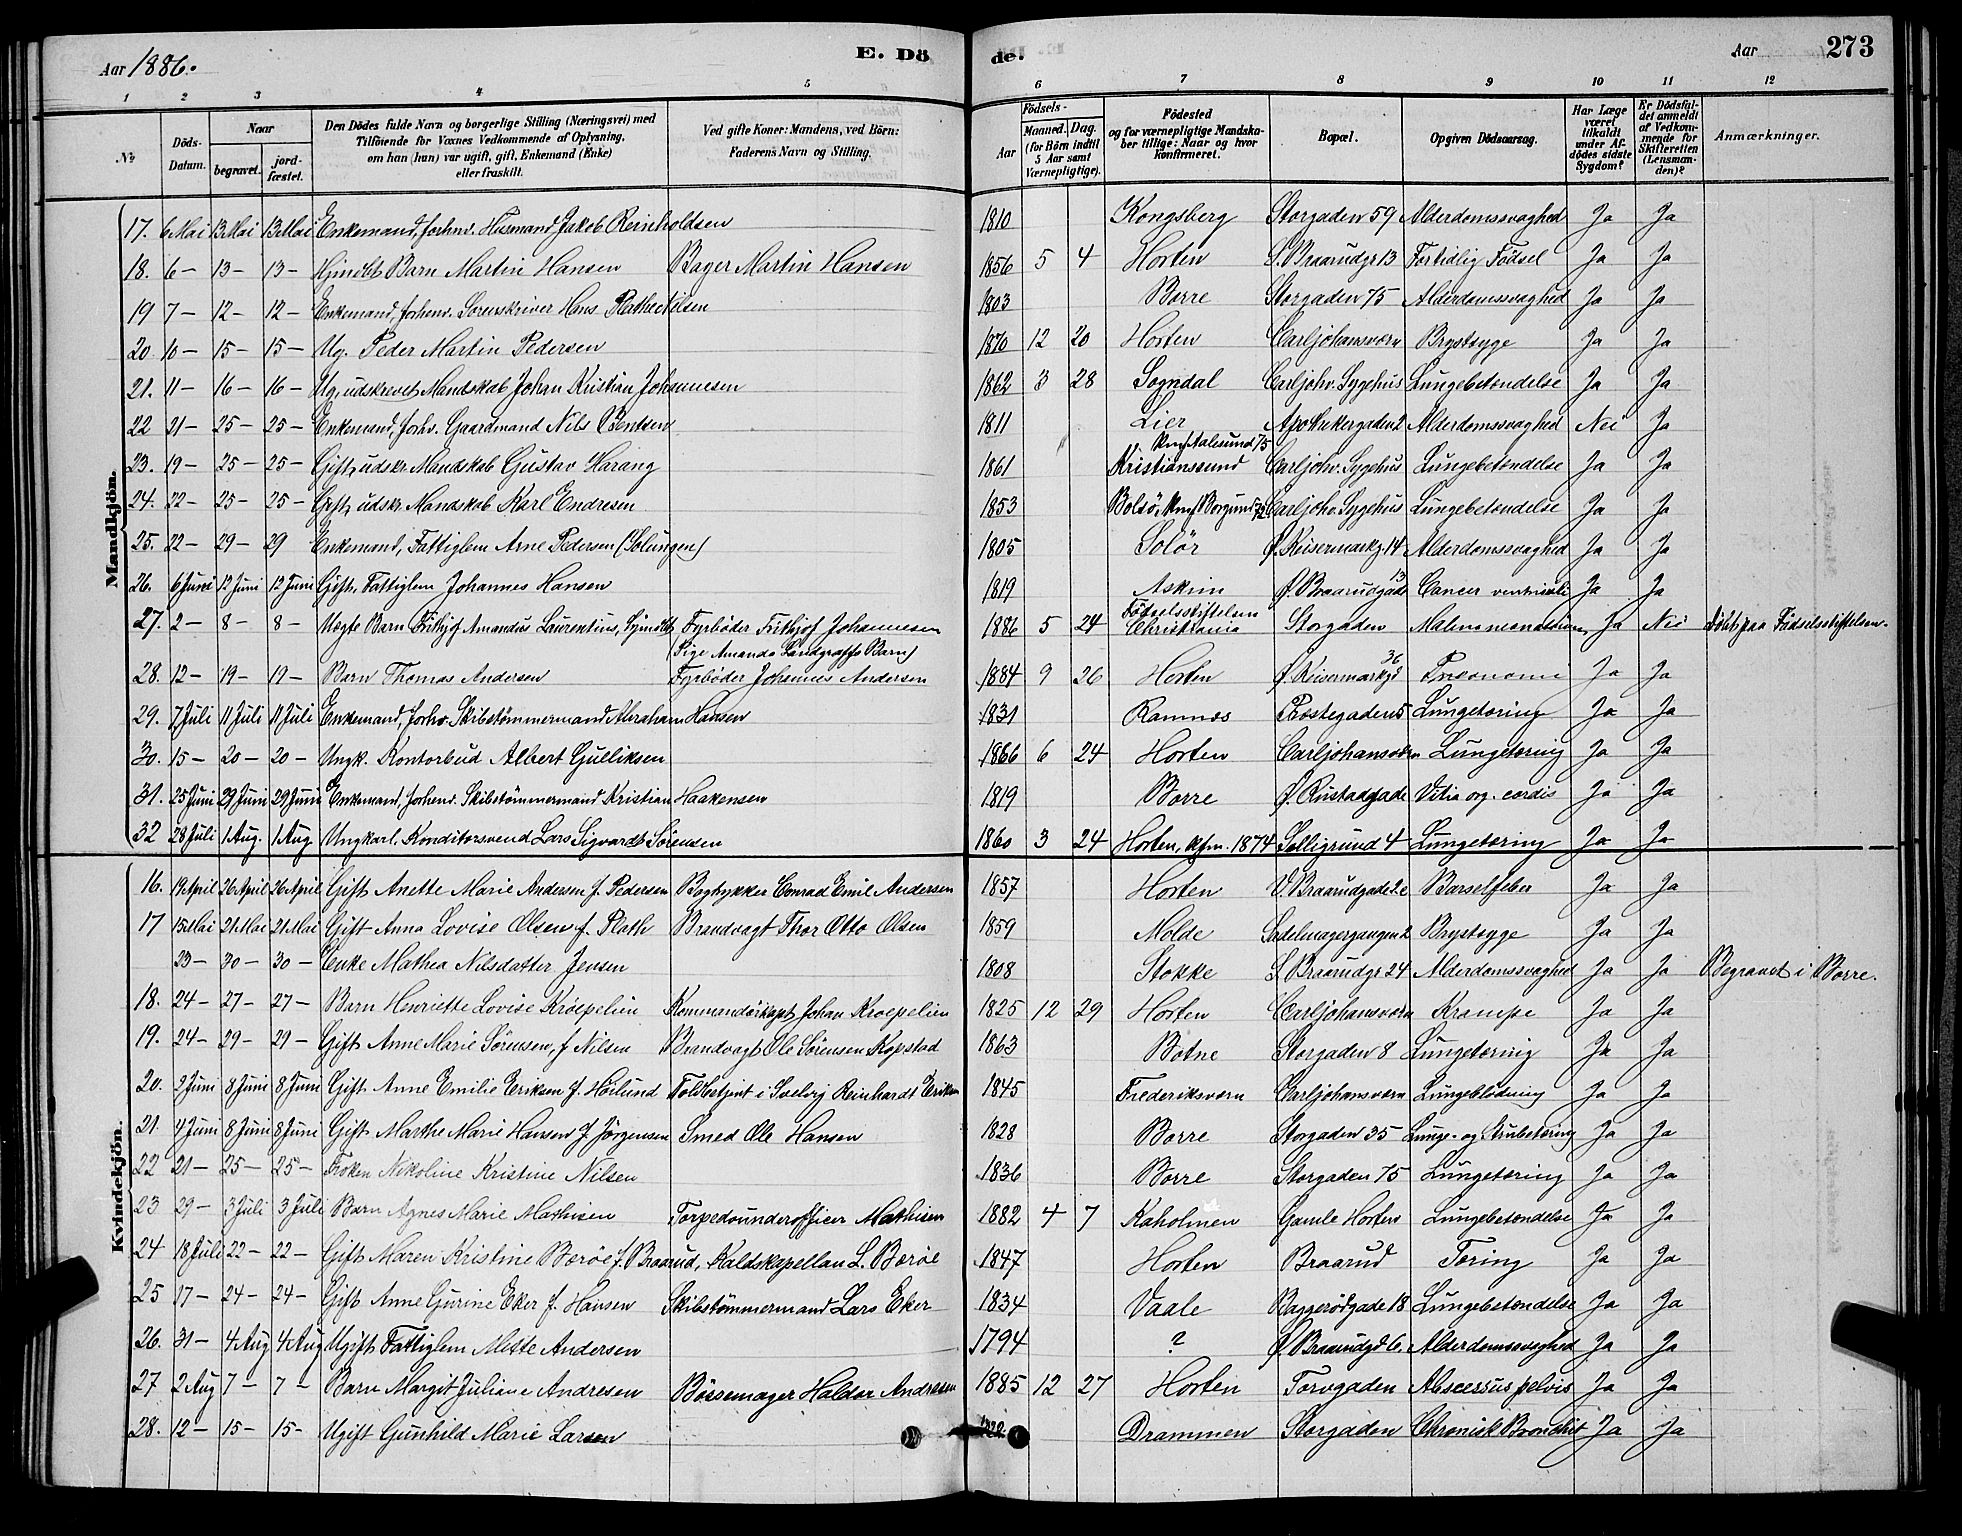 Aar 1886. E. Dö de. Aar 273
1 2 3 4 5 6 7 8 9 10 11 12
No | Döds-Datum. | Naar begravet. | jordfæstet. | Den Dödes fulde Navn og borgerlige Stilling (Næringsvei) med Tilföiende for Voxnes Vedkommende af Oplysning, om han (hun) var ugift, gift, Enkemand (Enke) eller fraskilt. | Ved gifte Koner: Mandens, ved Börn: Faderens Navn og Stilling. | Födsels- Aar | Maaned. Dag. (for Börn indtil 5 Aar samt Værnepligtige). | Födested og for værnepligtige Mandskaber tillige: Naar og hvor konfirmeret. | Bopæl. | Opgiven Dödsaarsag. | Har Læge været tilkaldt under Afdödes sidste Sygdom? | Er Dödsfaldet anmeldt af Vedkommende for Skifteretten (Lensmanden)? | Anmærkninger.
Mandkjön.
17. 6 Mai 13 Mai 13 Mai Enkemand, forhnv. Husmand Jakob Reinholdsen 1810 Kongsberg Storgaden 59 Alderdomssvaghed Ja Ja
18. 6 – 13 – 13 – Hjmdbt Barn Martin Hansen Bager Martin Hansen 1856 5 4 Horten S. Braarudgr 13 Fortidlig Födsel Ja Ja
19 7 – 12 – 12 – Enkemand, forhenv. Sorenskriver Hans Plathe Nilsen 1803 Borre Storgaden 75 Alderdomssvaghed Ja Ja
20. 10 – 15 – 15 – Ug. Peder Martin Pedersen 1870 12 20 Horten Carljohansværn Brystsyge Ja Ja
21. 11 – 16 – 16 – Ug. udskrevet Mandskab Johan Kristian Johannesen 1862 3 28 Sogndal Carljohv. Sygehus Lungebetændelse Ja Ja
22 21 – 25 – 25 – Enkemand, forhv. Gaardmand Nils Bentsen 1811 Lier Apothekergaden 2 Alderdomssvaghed Nei Ja
23. 19 – 25 – 25 – Gift, udskr. Mandskab Gustav Harang 1861 Kristianssund Kmf Aalesund 75 Carljohv. Sygehus Lungebetændelse Ja Ja
24. 22 – 25 – 25 – Gift, udskr. Mandskab Karl Endresen 1853 Bolsö, Kmf Borgund 72 Carljohv. Sygehus Lungebetændelse Ja Ja
25. 22 – 29 – 29 Enkemand, Fattiglem Arne Pedersen (Solungen) 1805 Solör Ø. Keisermarkg. 14 Alderdomssvaghed Ja Ja
26. 6 Juni 12 Juni 12 Juni Gift, Fattiglem Johannes Hansen 1819 Askim Ø. Braarudgade 13 Cancer ventriculi Ja Ja
27. 2 – 8 – 8 – Uægte Barn Frithjof Amandus Laurentius, Hjmdbt Fyrböder Frithjof Johannesen (Pige Amanda Landgraffs Barn) 1886 5 24 Födselsstiftelsen Christiania Storgaden Ja Nei Döbt paa Födselsstiftelsen.
28. 12 – 19 – 19 – Barn Thomas Andersen Fyrböder Johannes Andersen 1884 9 26 Horten Ø. Keisermarkgd 36 Pneonomi Ja Ja
29. 7 Juli 11 Juli 11 Juli Enkemand, forhv. Skibstömmermand Abraham Hansen 1831 Ramnæs Prestegaden 5 Lungetæring Ja Ja
30. 15 – 20 – 20 – Ungk. Kontorbud Albert Gulliksen 1866 6 24 Horten Carljohansværn Lungetæring Ja Ja
31. 25 Juni 29 Juni 29 Juni Enkemand, forhenv. Skibstömmermand Kristian Haakensen 1819 Borre Ø. Rustadgade Vitia org. cordis Ja Ja
32 28 Juli 1 Aug. 1 Aug Ungkarl. Konditorsvend Lars Sigvardt Sörensen 1860 3 24 Horten, kfm. 1874 Solligrund 4 Lungetæring Ja Ja
Kvindekjön.
16. 19 April 26 April 26 April Gift Anette Marie Andersen f. Pedersen Bogtykker Conrad Emil Andersen 1857 Horten V. Braarudgade 2c Barselfeber Ja Ja
17 15 Mai 21 Mai 21 Mai Gift Anna Lovise Olsen f. Plath Brandvagt Thor Otto Olsen 1859 Molde Sadelmagergangen 2 Brystsyge Ja Ja
23 – 30 – 30 – Enke Mathea Nilsdatter Jensen 1808 Stokke S. Braarudgr 24 Alderdomssvaghed Ja Ja Begravet i Borre.
18. 24 – 27 – 27 – Barn Henriette Lovise Kroepelien Kommandörkapt. Johan Kroepelien 1825 12 29 Horten Carljohansværn Krampe Ja Ja
19. 24 – 29 – 29 – Gift Anne Marie Sörensen, f. Nilsen Brandvagt Ole Sörensen Kopstad 1863 Botne Storgaden 8 Lungetæring Ja Ja
20. 2 Juni 8 Juni 8 Juni Gift Anne Emilie Eriksen f. Höilund Toldbetjent i Svelvig Reinhardt Eriksen 1845 Frederiksværn Carljohansværn Lungeblödning Ja Ja
21. 4 Juni 8 Juni 8 Juni Gift Marthe Marie Hansen f. Jörgensen Smed Ole Hansen 1828 Borre Storgaden 35 Lunge- og Strubetæring Ja Ja
22 21 – 25 – 25 – Fröken Nikoline Kristine Nilsen 1836 Borre Storgaden 75 Lungetæring Ja Ja
23 29 – 3 Juli 3 Juli Barn Agnes Marie Mathisen Torpedounderofficer Mathisen 1882 4 7 Kaholmen Gamle Horten Lungebetændelse Ja Ja
24 18 Juli 22 – 22 – Gift Maren Kristine Bæröe f. Braarud, Kaldskapellan L. Bæröe 1847 Horten Braarud Tæring Ja Ja
25 17 – 24 – 24 – Gift Anne Gurine Eker f. Hansen Skibstömmermand Lars Eker 1834 Vaale Baggerödgade 18 Lungebetændelse Ja Ja
26. 31 – 4 Aug 4 Aug Ugift Fattiglem Mette Andersen 1794 ? Ø. Braarudgd 6. Alderdomssvaghed Ja Ja
27 2 Aug 7 – 7 – Barn Margit Juliane Andresen Bössemager Haldor Andresen 1885 12 27 Horten Torvgaden Abscessus pelvis Ja Ja
28. 12 – 15 – 15 – Ugift Gunhild Marie Larsen Drammen Storgaden Chronisk Bronchit Ja Ja